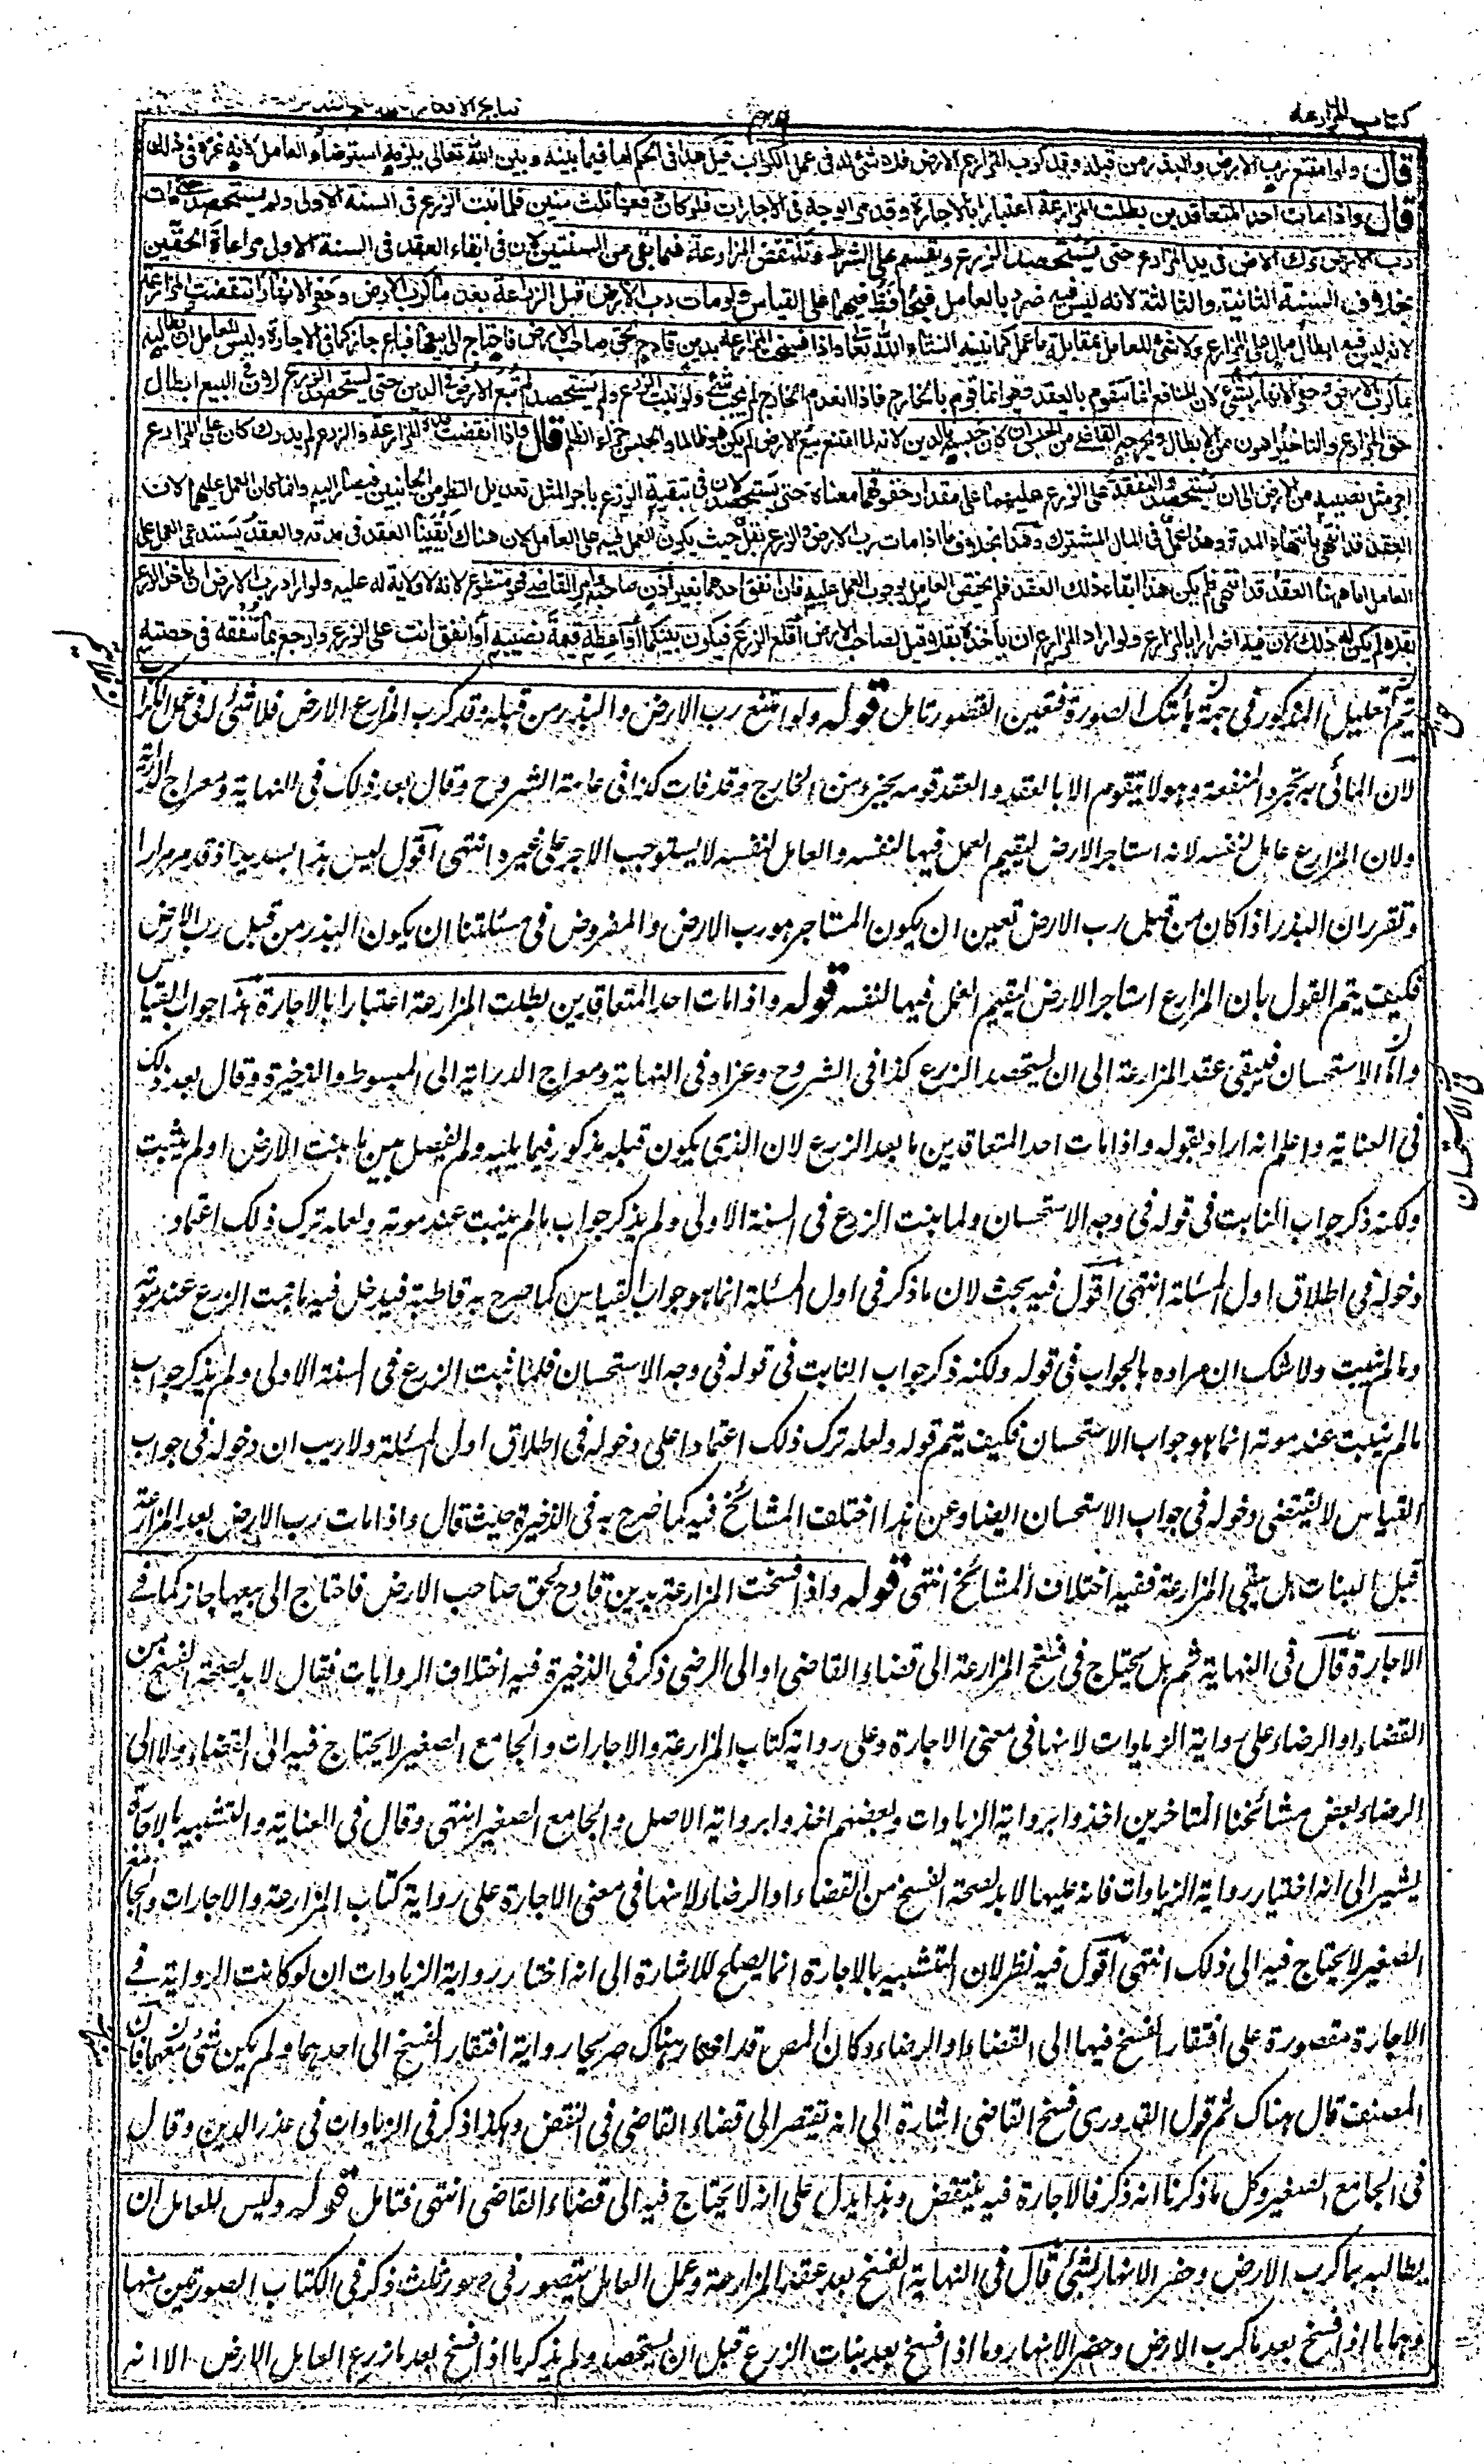 كتاب المزارعة
قال ولو امتنع رب الارض والبذر من قبله وقد كرب المزارع الارض فلا شئ له فى عمل الكراب قيل هذا فى الحكم اما فيما بينه وبين الله تعالى يلزمه استرضاء العامل لانه غره فى ذلك
قال واذا مات احد المتعاقدين بطلت المزارعة اعتبارا بالاجارة وقد مر الوجه فى الاجارات فلو كان دفعها ثلث سنين فلما نبت الزرع فى السنة الاولى ولم يستحصد حتى مات
رب الارض ترك الارض فى يد المزارع حتى يستحصد الزرع ويقسم على الشرط وتنتقض المزارعة فيما بقى من السنتين لان فى ابقاء العقد فى السنة الاولى مراعاة الحقين
بخلاف السنة الثانية والثالثة لانه ليس فيه ضرر بالعامل فيحافظ فيهما على القياس ولو مات رب الارض قبل الزراعة بعد ما كرب الارض وحفر الانهار انتقضت المزارعة
لانه ليس فيه ابطال مال على المزارع ولا شئ للعامل بمقابلة ما عمل كما نبينه انشاء الله تعالى واذا فسخت المزارعة بدين فادح لحق صاحب الارض فاحتاج الى بيعها فباع جاز كما فى الاجارة وليس للعامل ان يطالبه
بما كرب الارض وحفر الانهار بشئ لان المنافع انما تتقوم بالعقد وهو انما قوم بالخارج فاذا انعدم الخارج لم يجب شئ ولو نبت الزرع ولم يستحصد لم تبع الارض فى الدين حتى يستحصد الزرع لان فى البيع ابطال
حق المزارع والتاخير اهون من الابطال ويخرجه القاضى من الحبس ان كان حبسه بالدين لانه لما امتنع بيع الارض لم يكن هو ظالما والحبس جزاء الظلم قال واذا انقضت مدة المزارعة والزرع لم يدرك كان على المزارع
اجر مثل نصيبه من الارض الى ان يستحصد والنفقة على الزرع عليهما على مقدار حقوقهما معناه حتى يستحصد لان فى تبقية الزرع باجر المثل تعديل النظر من الجانبين فيصار اليه وانما كان العمل عليهما لان
العقد قد انتهى بانتهاء المدة وهذا عمل فى المال المشترك وهذا بخلاف ما اذا مات رب الارض والزرع بقل حيث يكون العمل فيه على العامل لان هناك ابقينا العقد فى مدته والعقد يستدعى العمل على
العامل اما هنا العقد قد انتهى فلم يكن هذا ابقاء ذلك العقد فلم يختص العامل بوجوب العمل عليه فان انفق احدهما بغير اذن صاحبه وامر القاضى فهو متطوع لانه لا ولاية له عليه ولو اراد رب الارض ان ياخذ الزرع
بقلا لم يكن له ذلك لان فيه اضرارا بالمزارع ولو اراد المزارع ان ياخذه بقلا قيل لصاحب الارض اقلع الزرع فيكون بينكما او اعطه قيمة نصيبه او انفق انت على الزرع وارجع بما تنفقه فى حصته
ثم تعليل المذكور فى تمة بأتتك الصورة فتعين القصور تامل قوله ولو امتنع رب الارض والبذر من قبله وقد كرب المزارع الارض فلا شئ له فى عمل الكراب
لان الماتى به مجرد المنفعة وهو لا يتقوم الا بالعقد والعقد قومه بجزء من الخارج وقد فات كذا فى عامة الشروح وقال بعد ذلك فى النهاية ومعراج الدراية
ولان المزارع عامل لنفسه لانه استاجر الارض ليقيم العمل فيها لنفسه والعامل لنفسه لا يستوجب الاجر على غيره انتهى اقول ليس هذا بسديد اذ قد مر مرارا
وتقرر ان البذر اذا كان من قبل رب الارض تعين ان يكون المستاجر هو رب الارض والمفروض فى مسئلتنا ان يكون البذر من قبل رب الارض
فكيف يتم القول بان المزارع استاجر الارض ليقيم العمل فيها لنفسه قوله واذا مات احد المتعاقدين بطلت المزارعة اعتبارا بالاجارة هذا جواب القياس
واما الاستحسان فيبقى عقد المزارعة الى ان يستحصد الزرع كذا فى الشروح وعزاه فى النهاية ومعراج الدراية الى المبسوط والذخيرة وقال بعد ذلك
فى العناية واعلم انه اراد بقوله واذا مات احد المتعاقدين ما بعد الزرع لان الذى يكون قبله مذكور فيما يليه ولم يفصل بين ما بنت الارض او لم يثبت
ولكنه ذكر جواب النابت فى قوله فى وجه الاستحسان ولما بنت الزرع فى السنة الاولى ولم يذكر جواب ما لم ينبت عند موته ولعله ترك ذلك اعتماد
دخوله فى اطلاق اول المسئلة انتهى اقول فيه بحث لان ما ذكر فى اول المسئلة انما هو جواب القياس كما صرح به قاطبة فيدخل فيه ما نبت الزرع عند موته
وما لم ينبت ولا شك ان مراده بالجواب فى قوله ولكنه ذكر جواب النابت فى قوله فى وجه الاستحسان فلما نبت الزرع فى السنة الاولى ولم يذكر جواب
ما لم ينبت عند موته انما هو جواب الاستحسان فكيف يتم قوله ولعله ترك ذلك اعتمادا على دخوله فى اطلاق اول المسئلة ولا ريب ان دخوله فى جواب
القياس لا يقتضى دخوله فى جواب الاستحسان ايضا وعن هذا اختلف المشائخ فيه كما صرح به فى الذخيرة حيث قال واذا مات رب الارض بعد المزارعة
قبل النبات هل يبقى المزارعة ففيه اختلاف المشائخ انتهى قوله واذا فسخت المزارعة بدين فادح لحق صاحب الارض فاحتاج الى بيعها جاز كما فى
الاجارة قال فى النهاية ثم هل يحتاج فى فسخ المزارعة الى قضاء القاضى او الى الرضى ذكر فى الذخيرة فيه اختلاف الروايات فقال لا بد لصحة الفسخ من
القضاء او الرضاء على رواية الزيادات لانها فى معنى الاجارة وعلى رواية كتاب المزارعة والاجارات والجامع الصغير لا يحتاج فيه الى القضاء ولا الى
الرضاء بعض مشائخنا المتاخرين اخذوا برواية الزيادات وبعضهم اخذوا برواية الاصل والجامع الصغير انتهى وقال فى العناية والتشبيه بالاجارة
يشير الى انه اختيار رواية الزيادات فانه عليها لا بد لصحة الفسخ من القضاء او الرضاء لانها فى معنى الاجارة على رواية كتاب المزارعة والاجارات والجامع
الصغير لا يحتاج فيه الى ذلك انتهى اقول فيه نظر لان التشبيه بالاجارة انما يصلح للاشارة الى انه اختار رواية الزيادات ان لو كانت الرواية فى
الاجارة مقصورة على افتقار الفسخ فيها الى القضاء او الرضاء وكان المص قد اختار هناك صريحا رواية افتقار الفسخ الى احدهما ولم يكن شئ منهما فان
المصنف قال هناك ثم قول القدورى فسخ القاضى اشارة الى انه يفتقر الى قضاء القاضى فى النقض وهكذا ذكر فى الزيادات فى عذر الدين وقال
فى الجامع الصغير وكل ما ذكرنا انه ذكر فالاجارة فيه ينتقض وهذا يدل على انه لا يحتاج فيه الى قضاء القاضى انتهى فتامل قوله وليس للعامل ان
يطالبه بما كرب الارض وحفر الانهار بشئ قال فى النهاية الفسخ بعد عقد المزارعة وعمل العامل يتصور فى صور ثلث ذكر فى الكتاب الصورتين منها
وهما ما اذا فسخ بعد ما كرب الارض وحفر الانهار وما اذا فسخ بعد نبات الزرع قبل ان يستحصد ولم يذكر ما اذا فسخ بعد ما زرع العامل الارض الا انه